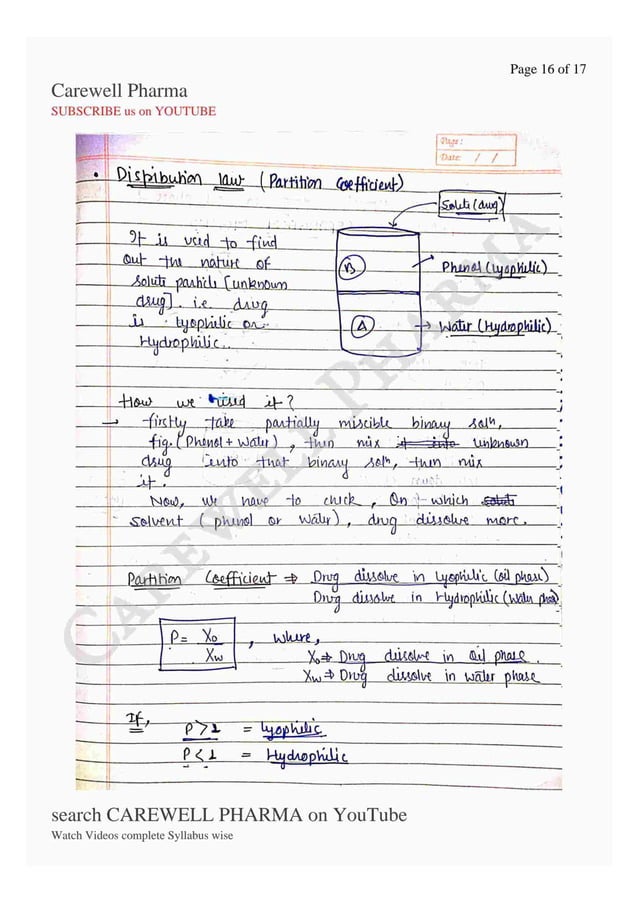 Page 16 of 17
Carewell Pharma
SUBSCRIBE us on YOUTUBE
Page:
Date: / /
• Distribution law (Partition Coefficient)
Solute (drug)
It is used to find
out the nature of
solute particle [unknown
drug]. i.e. drug
is lyophilic or
Hydrophilic..
B
Phenol (Lyophilic)
A
→ Water (Hydrophilic)
How we used it?
→ firstly take partially miscible binary solⁿ,
fig. (Phenol + Water), then mix it into unknown
drug into that binary solⁿ, then mix
it.
Now, we have to check, On which solut
solvent (phenol or water), drug dissolve more.
Partition Coefficient ⇒ Drug dissolve in Lyophilic (oil phase)
Drug dissolve in Hydrophilic (water phase)
P = Xo
Xw
, where,
Xo ⇒ Drug dissolve in Oil phase.
Xw ⇒ Drug dissolve in water phase
If,
P > 1 = Lyophilic
P < 1 = Hydrophilic
CAREWELL PHARMA
search CAREWELL PHARMA on YouTube
Watch Videos complete Syllabus wise